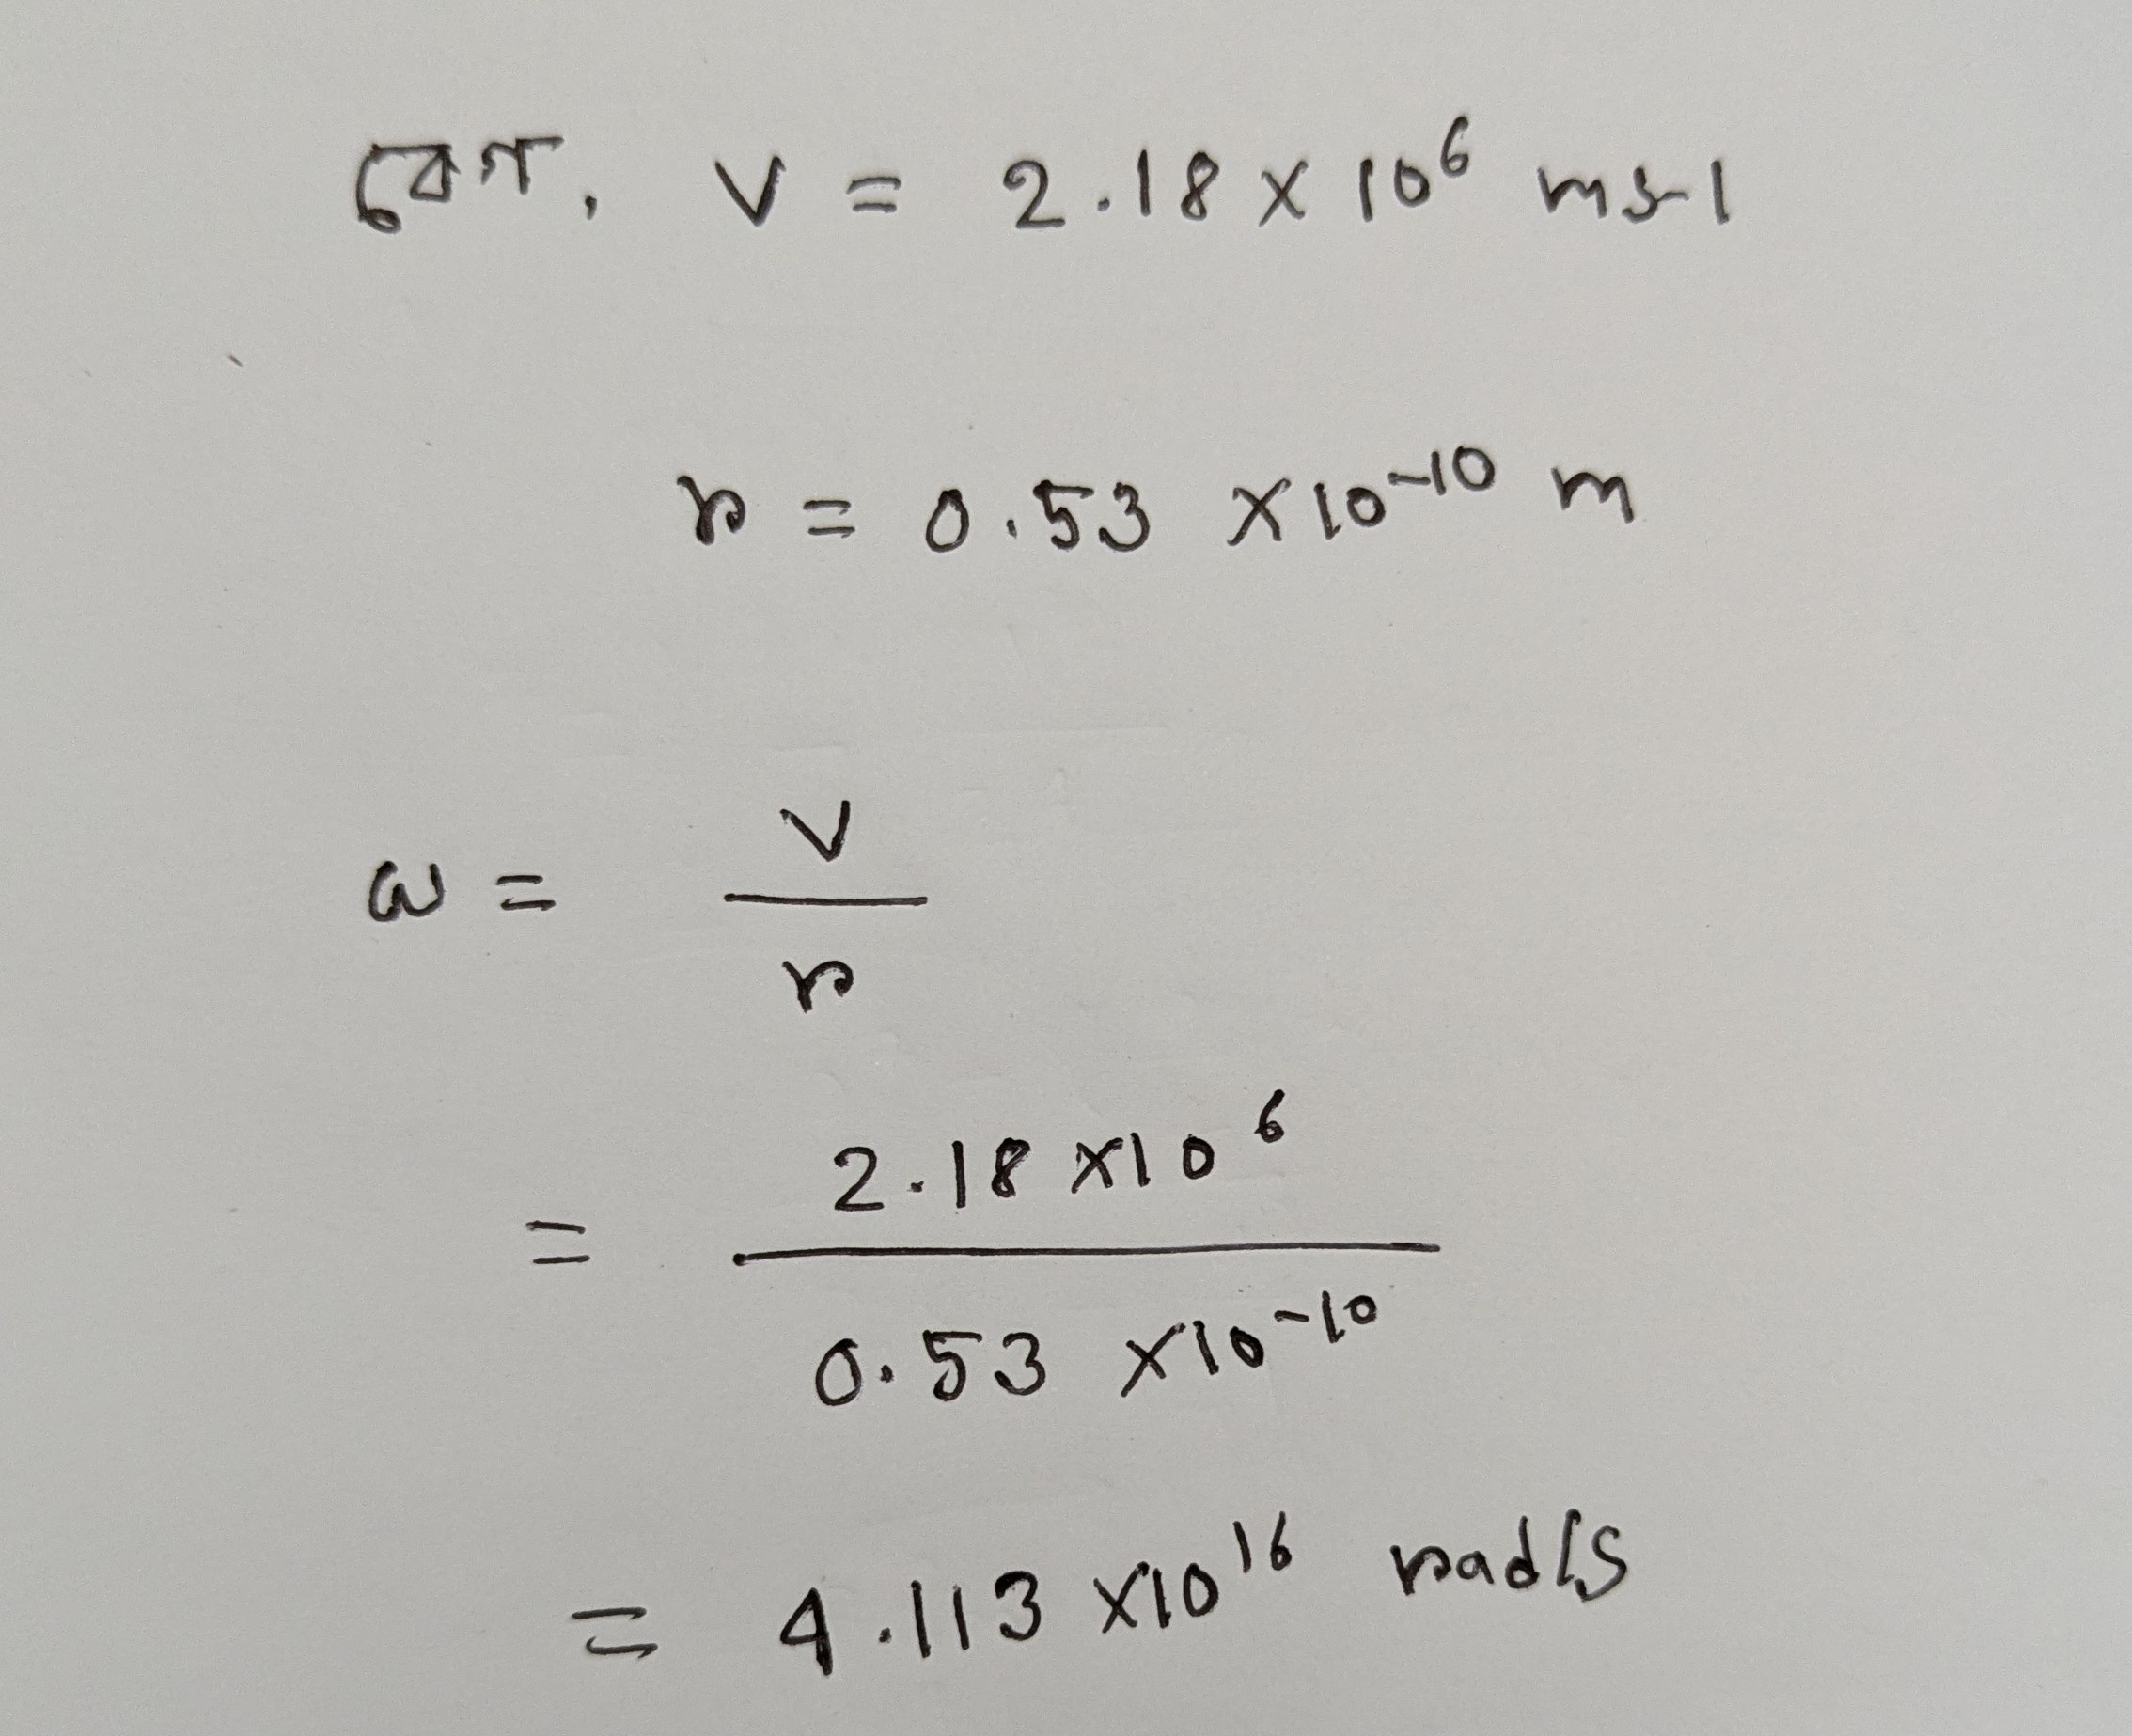 বেগ, v = 2.18 × 10⁶ ms-1
r = 0.53 ×10⁻¹⁰ m
ω = v/r
= 2.18 ×10⁶ / 0.53 ×10⁻¹⁰
= 4.113 ×10¹⁶ rad/s